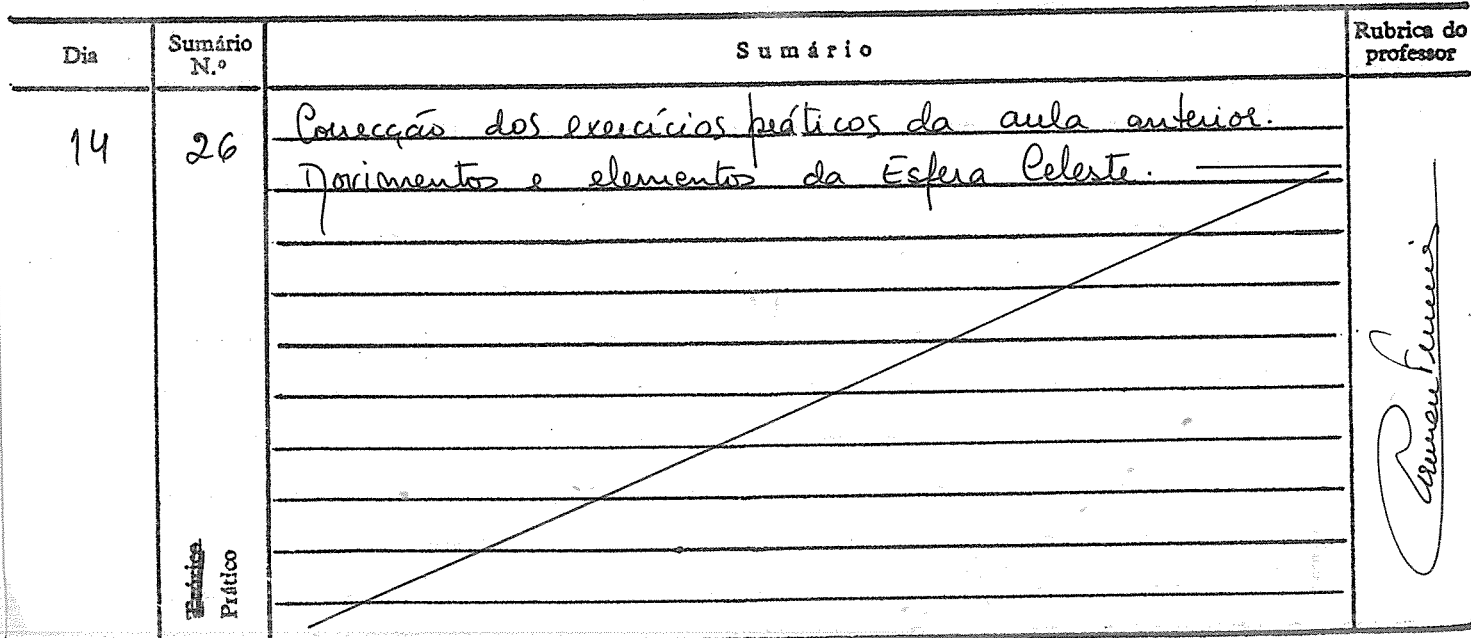 Dia
Sumário
N.º
Sumário
Rubrica do
professor
14
26
Correcção dos exercícios práticos da aula anterior.
Movimentos e elementos da Esfera Celeste.
Teórico
Prático